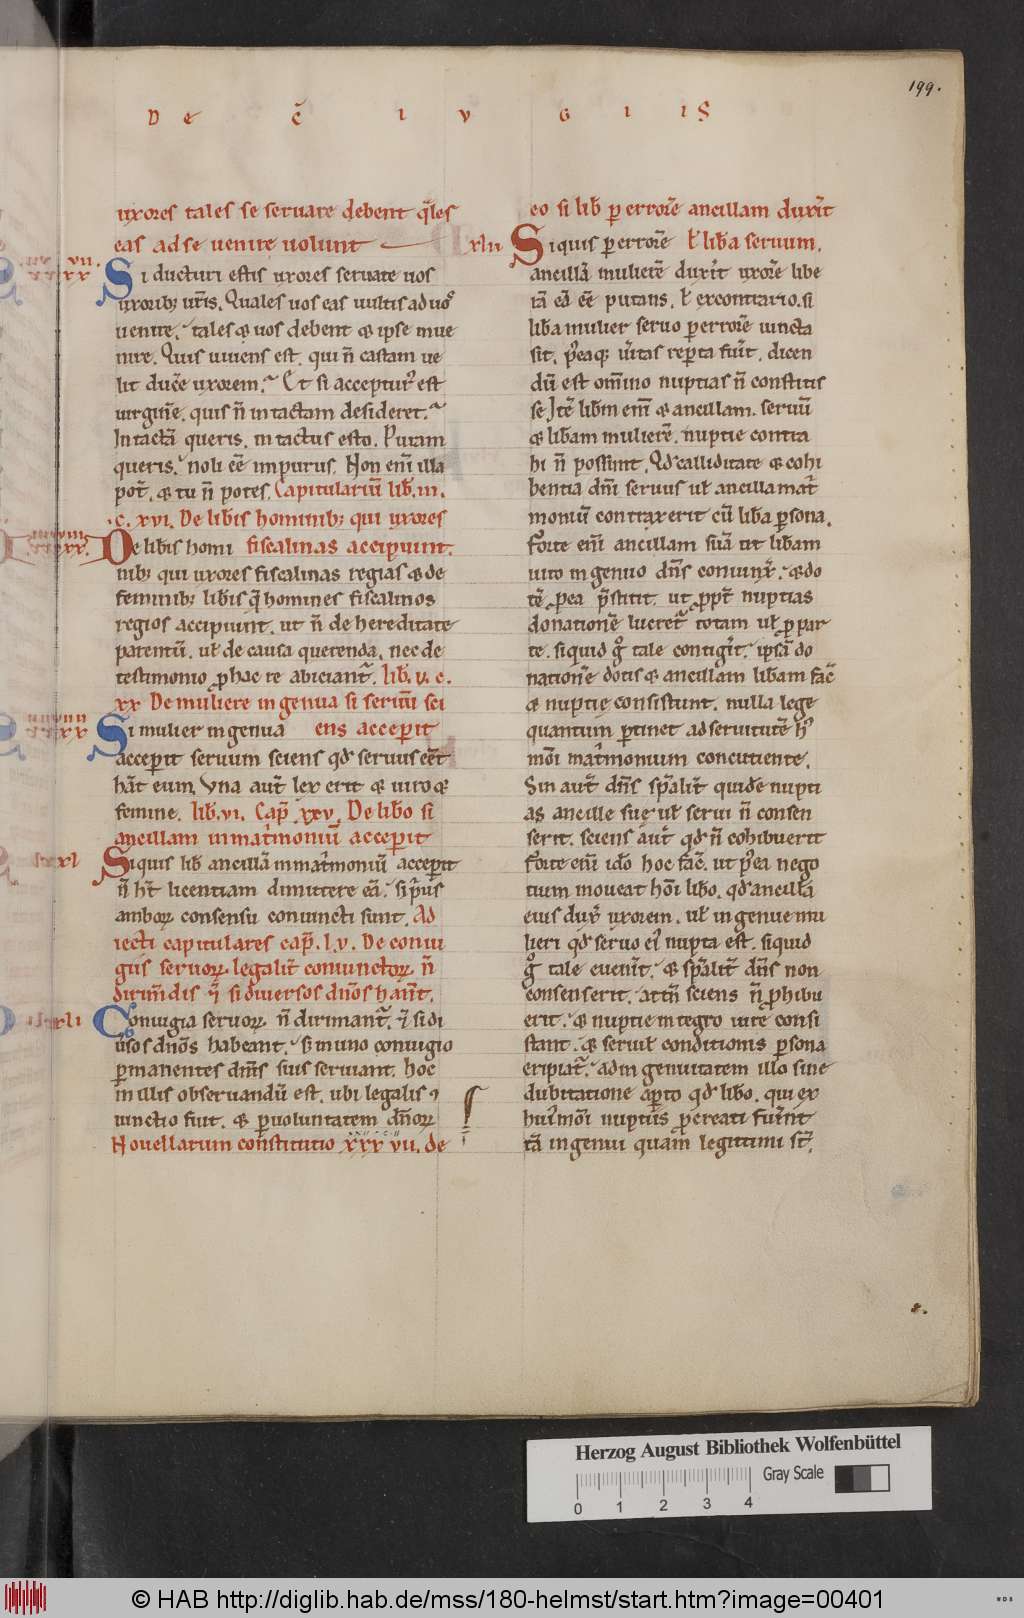 199.
DE C̄ I V G I I S
uxores tales se seruare debent q̄les
eas ad se uenire uolunt
Si ducturi estis uxores seruate uos
uxorib; ur̄is. Quales uos eas uultis ad uos
uenire. tales & uos debent & ipse inue
nire. Quis uiuens est. qui n̄ castam ue
lit duc̄e uxorem. Et si accepturus est
uirginē. quis n̄ intactam desideret.
Intactā queris. intactus esto. Puram
queris. noli ēē impurus. Non enī illa
pot̄. & tu n̄ potes. Capitulariū lib̄. iii.
c. xvi. De lib̄is hominib; qui uxores
De lib̄is homi fiscalinas accipiunt.
nib; qui uxores fiscalinas regias & de
feminib; lib̄is q̄ homines fiscalinos
regios accipiunt. ut n̄ de hereditate
parentū. uł de causa querenda. nec de
testimonio p̄ hac re abiciant̄. lib̄. v. c.
xx De muliere ingenua si seruū sci
Si mulier ingenua ens acceperit
acceperit seruum sciens qd̄ seruus eēt
hāt eum. Una aut̄ lex erit & uiro &
femine. lib̄. vi. Cap̄. xxv. De lib̄o si
ancillam in mat̄rmoniū acceperit
Siquis lib̄ ancillā in mat̄rmoniū acceperit
n̄ ht̄ licentiam dimittere eā. si p̄us
amborꝝ consensu coniuncti sunt. Ad
iecti capitulares cap̄. l.v. De coniu
giis seruorꝝ legalit̄ coniunctorꝝ n̄
dirim̄dis & si diuersos dn̄os hant̄.
Coniugia seruorꝝ n̄ dirimant̄. & si di
uersos dn̄os habeant. s; in uno coniugio
p̄manentes dn̄is suis seruiant. hoc
in illis obseruandū est. ubi legalis 9
iunctio fuit. & p̄ uoluntatem dn̄orꝝ
Nouellarum constitutio xxxvii. de
eo si lib̄ p̄ errorē ancillam duxit̄
xlii Siquis p̄ errorē ł lib̄a seruum.
ancillā mulierē duxit̄ uxorē libe
rā eā ēē putans. ł ex contrario. si
lib̄a mulier seruo p̄ errorē iuncta
sit. p̄ea q; ūitas rep̄ta fuit̄. dicen
dū est om̄ino nuptias n̄ constitis
se. Itē lib̄m enī & ancillam. seruū
& lib̄am mulierē. nuptie contra
hi n̄ possunt. Qd̄ calliditate & cohi
bentia dn̄i seruus uł ancilla mat̄
moniū contraxerit cū lib̄a p̄sona.
Forte enī ancillam suā ut lib̄am
uiro ingenuo dn̄s coniunx̄. & do
tē p̄ ea p̄stitit. ut p̄pt̄ nuptias
donationē lucret̄ totam uł p̄ par
te. si quid g̊ tale contigit̄. ipsā do
nationē dotis & ancillam lib̄am fac̄
& nuptię consistunt. nulla lege
quantum p̄tinet ad seruitutē h9
mōi mat̄rmonium concutiente.
Sin aut̄ dn̄s sp̄alit̄ quidē nupti
as ancille suę uł serui n̄ consen
serit. sciens aut̄ qd̄ n̄ cohibuerit
Forte enī idō hoc fac̄. ut p̄ ea nego
tium moueat hōi lib̄o. qd̄ ancillā
eius dux̄ uxorem. uł ingenue mu
lieri qd̄ seruo ei9 nupta est. siquid
g̊ tale euenit̄. & sp̄alit̄ dn̄s non
consenserit. attn̄ sciens n̄ p̄hibu
erit. & nuptie integro iure consi
stant. & seruił conditionis p̄sona
eripiat̄. ad ingenuitatem illo sine
dubitatione ap̄to qd̄ lib̄o. qui ex
hui9mōi nuptiis p̄creati fuerint
tā ingenui quam legittimi st̄.
Herzog August Bibliothek Wolfenbüttel
Gray Scale
0 1 2 3 4
© HAB http://diglib.hab.de/mss/180-helmst/start.htm?image=00401